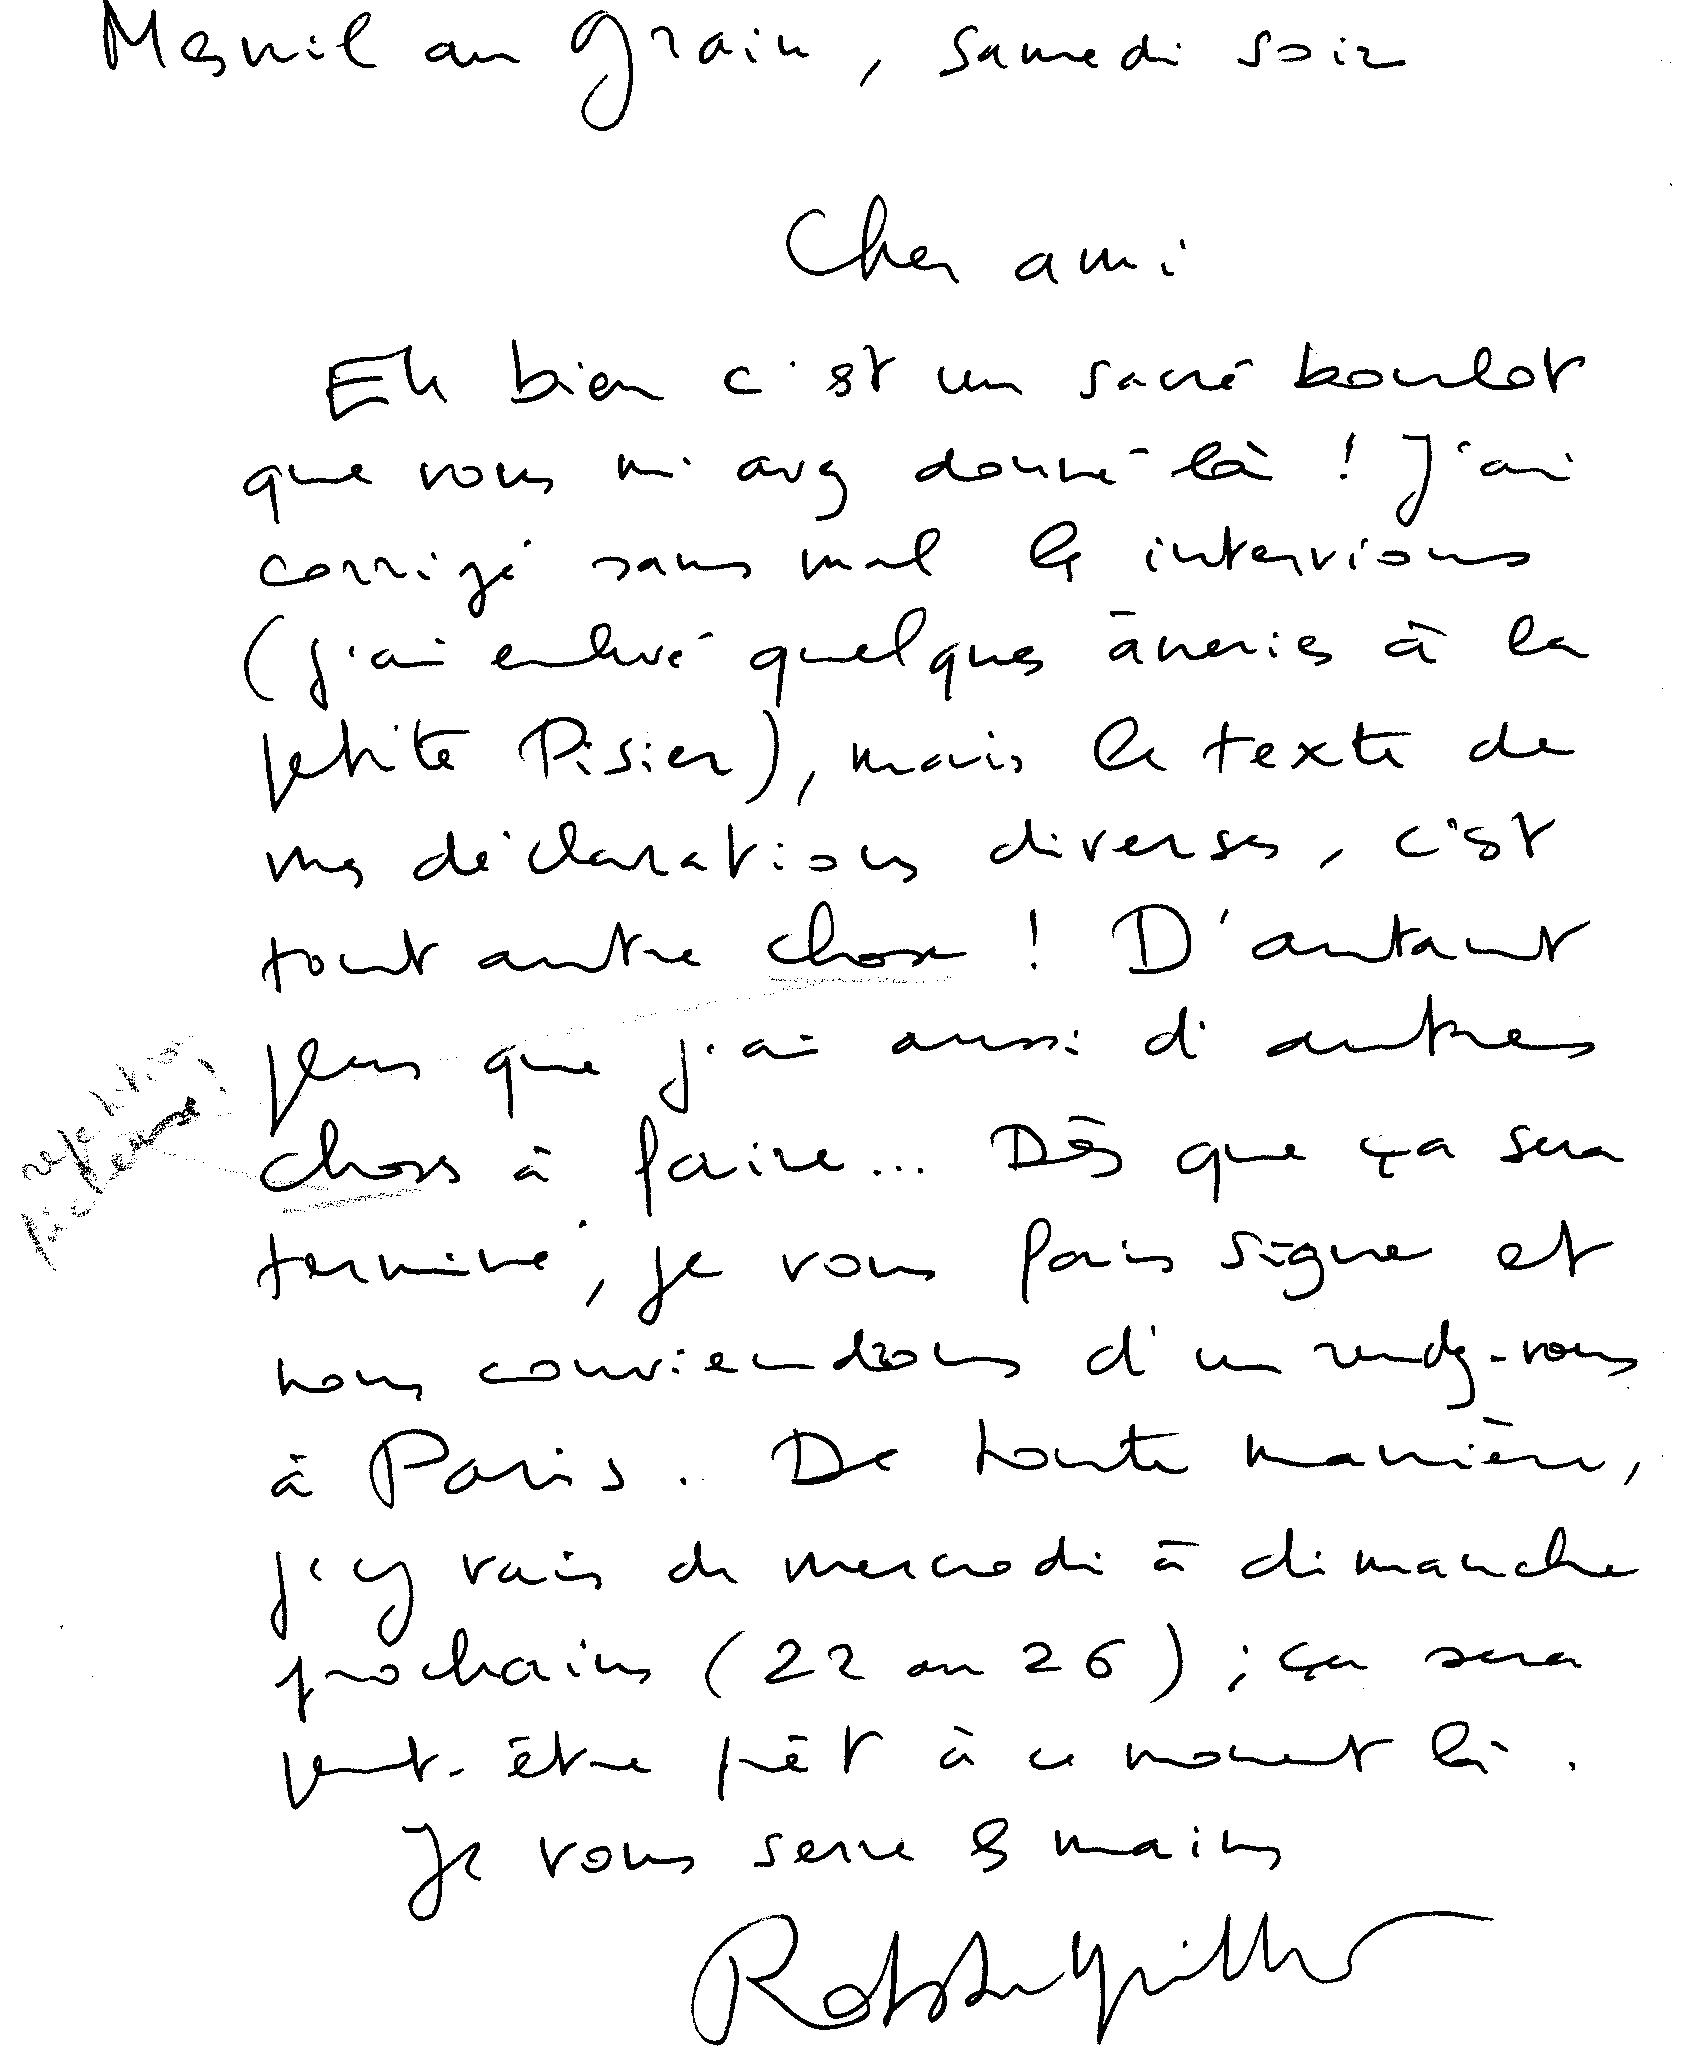 Mesnil au Grain, samedi soir
Cher ami
Eh bien c'est un sacré boulot
que vous m'avez donné là ! J'ai
corrigé sans mal les intervious
(j'ai enlevé quelques âneries à la
petite Pisier), mais le texte de
mes déclarations diverses, c'est
tout autre chose ! D'autant
plus que j'ai aussi d'autres
répétition
fâcheuse
choses à faire... Dès que ça sera
terminé, je vous fais signe et
nous conviendrons d'un rendez-vous
à Paris. De toute manière,
j'y vais de mercredi à dimanche
prochains (22 au 26) ; ça sera
peut-être prêt à ce moment là.
Je vous serre les mains
Robbe-Grillet